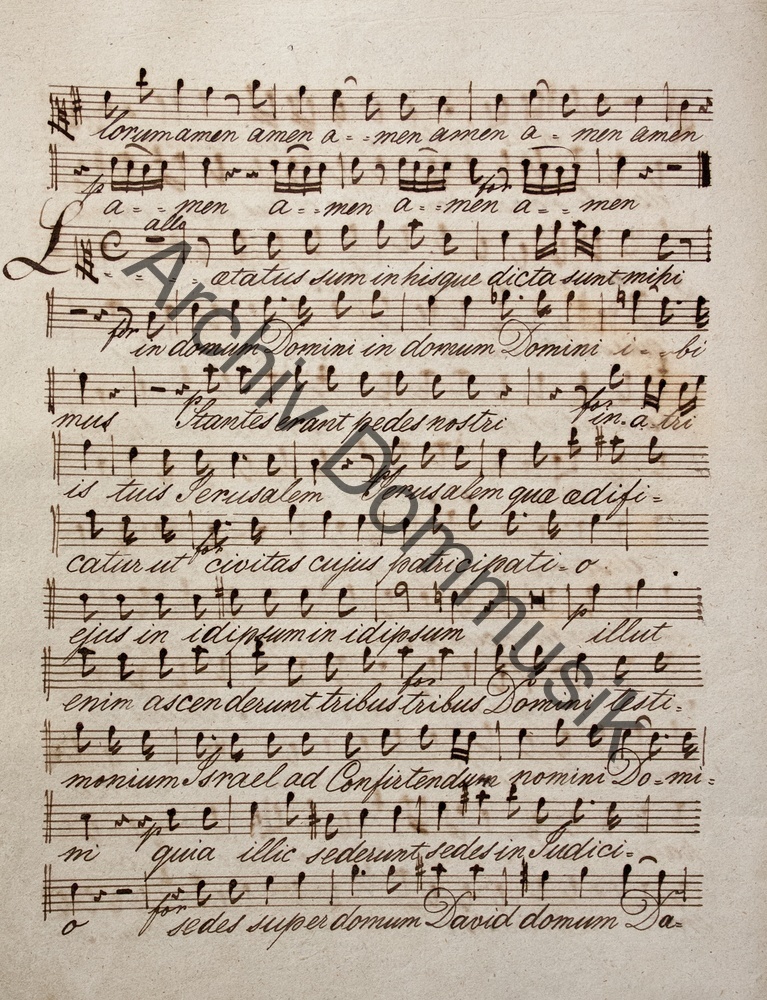 lorum amen amen a - - men amen a - men amen
p for
a - - men a - - men a - - men a - - men
allo
L - - - - ætatus sum in hisque dicta sunt mihi
for
in domum Domini in domum Domini i - - bi
p for
mus Stantes erant pedes nostri in. a tri
p
is tuis Jerusalem Jerusalem quæ ædifi =
for
catur ut civitas cujus patricipati - o.
p
ejus in idipsum in idipsum illut
for
enim ascenderunt tribus tribus Domini testi =
monium Israel ad Confirtendum nomini Do = mi =
p
ni quia illic sederunt sedes in Judici =
for
o sedes super domum David domum Da =
Archiv Dommusik